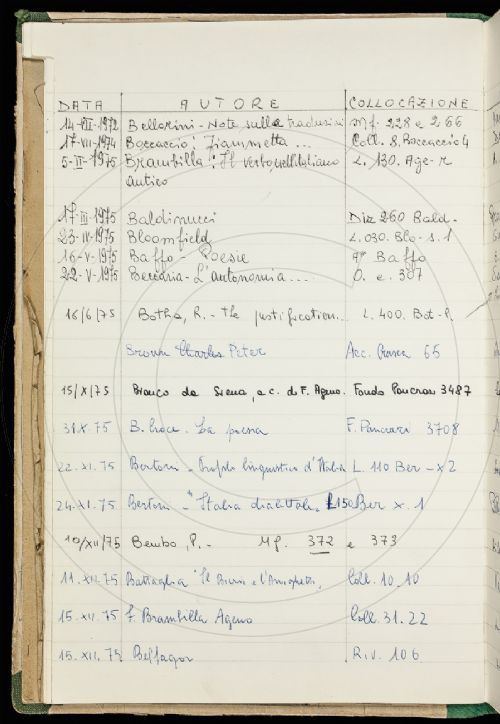 DATA AUTORE COLLOCAZIONE
14-VII-1972 Bellorini - Note sulla traduzione Mf. 228 e 266
17-VII-1974 Boccaccio: Fiammetta ... Coll. 8. Boccaccio 4
5-II-1975 Brambilla: Il verbo nell'italiano L. 130. Age-r
antico
17-III-1975 Baldinucci Diz 260 Bald-
23-IV-1975 Bloomfield L. 030. Blo-s.1
16-V-1975 Baffo - Poesie Baffo
22-V-1975 Beccaria - L'autonomia ... O. e. 307
16/6/75 Botha, R. - the justification... L. 400. Bot-P.
Brown Charles Peter Acc. Crusca 65
15/X/75 Bianco da Siena, a c. di F. Ageno. Fondo Pancrazi 3487
31.X.75 B. Croce - La poesia F. Pancrazi 3708
22.XI.75 Bertoni - Profilo linguistico d'Italia L. 110 Ber - x2
24.XI.75 Bertoni - "Italia dialettale L150 Ber x. 1
10/XII/75 Bembo, P. - Mf. 372 e 373
11.XII.75 Battaglia Coll. 10.10
15.XII.75 F. Brambilla Ageno Coll. 31.22
15.XII.75 Belfagor Riv. 106